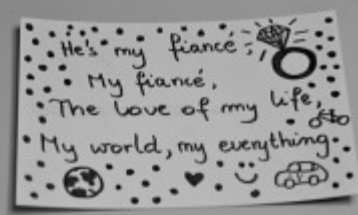 He's my fiance
My fiancé,
The love of my life,
My world, my everything.